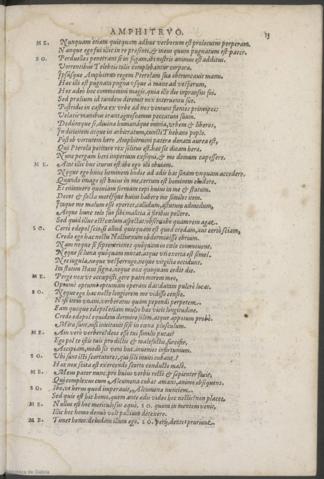 AMPHITRVO. 13
ME. Nunquam etiam quicquam adhuc verborum est prolocutus perperam.
Nanque ego fui illic in re præsenti, & meus quum pugnatum est pater.
SO. Perduelles penetrant se in fugam, ibi nostris animus est additus.
Vortentibus Telebois telis complebantur corpora.
Ipsusque Amphitruo regem Pterelam sua obtruncavit manu.
Hæc illic est pugnata pugna usque a mane ad vesperum,
Hoc adeo hoc commemini magis, quia illo die inpransus fui.
Sed prælium id tandem diremit nox interventu suo.
Postridie in castra ex urbe ad nos veniunt flentes principes:
Velatis manibus orant, ignoscamus peccatum suum.
Deduntque se, divina humanaque omnia, urbem & liberos,
In ditionem atque in arbitratum, cuncti Thebano poplo.
Post ob virtutem hero Amphitruoni patera donata aurea est,
Qui Pterela potitare rex solitus est. hæc sic dicam heræ.
Nunc pergam heri imperium exequi, & me domum capessere.
ME. Atat illic huc iturus est: ibo ego illi obviam.
Neque ego hunc hominem hodie ad ædis has sinam unquam accedere.
Quando imago est huius in me, certum est hominem eludere.
Et enimvero quoniam formam cepi huius in me & statum,
Decet & facta moresque huius habere me similes item.
Itaque me malum esse oportet, callidum, astutum admodum,
Atque hunc telo suo sibi malitia a foribus pellere.
Sed quid illuc est? cælum aspectat: observabo quamrem agat.
SO. Certe edepol scio, si aliud quicquam est quod credam, aut certo sciam,
Credo ego hac noctu Nocturnum obdormisse ebrium.
Nam neque se septemtriones quoquam in cælo commovent.
Neque se luna quoquam mutat, atque uti exorta est semel.
Nec iugulæ, neque vesperugo, neque virgiliæ occidunt.
Ita statim stant signa, neque nox quoquam cedit die.
ME. Perge nox ut occæpisti, gere patri morem meo,
Optume optumo optumam operam das: datam pulcre locas.
SO. Neque ego hac nocte longiorem me vidisse censeo.
Nisi item unam, verberatus quam pependi perpetem.
Eam quoque edepol etiam multo hæc vicit longitudine.
Credo edepol equidem dormire solem, atque appotum probe.
Mira sunt, nisi invitavit sese in cœna plusculum.
ME. Ain vero verbero? deos esse tui similis putas?
Ego pol te istis tuis pro dictis & malefactis, furcifer,
Accipiam, modo sis veni huc: invenies infortunium.
SO. Ubi sunt isti scortatores, qui soli inviti cubant?
Hæc nox scita est exercendo scorto conducto male.
ME. Meus pater nunc pro huius verbis recte & sapienter facit,
Qui complexus cum Alcumena cubat amans, animo obsequens.
SO. Ibo, ut herus quod imperavit, Alcumenæ nunciem.
Sed quis est hic homo, quem ante ædis video hoc noctis? non placet.
ME. Nullus est hoc meticulosus æque. SO. quum in mentem venit,
Illic hic homo denuo vult pallium detexere.
ME. Timet homo: deludam illum ego. SO. Perii, dentes pruriunt.